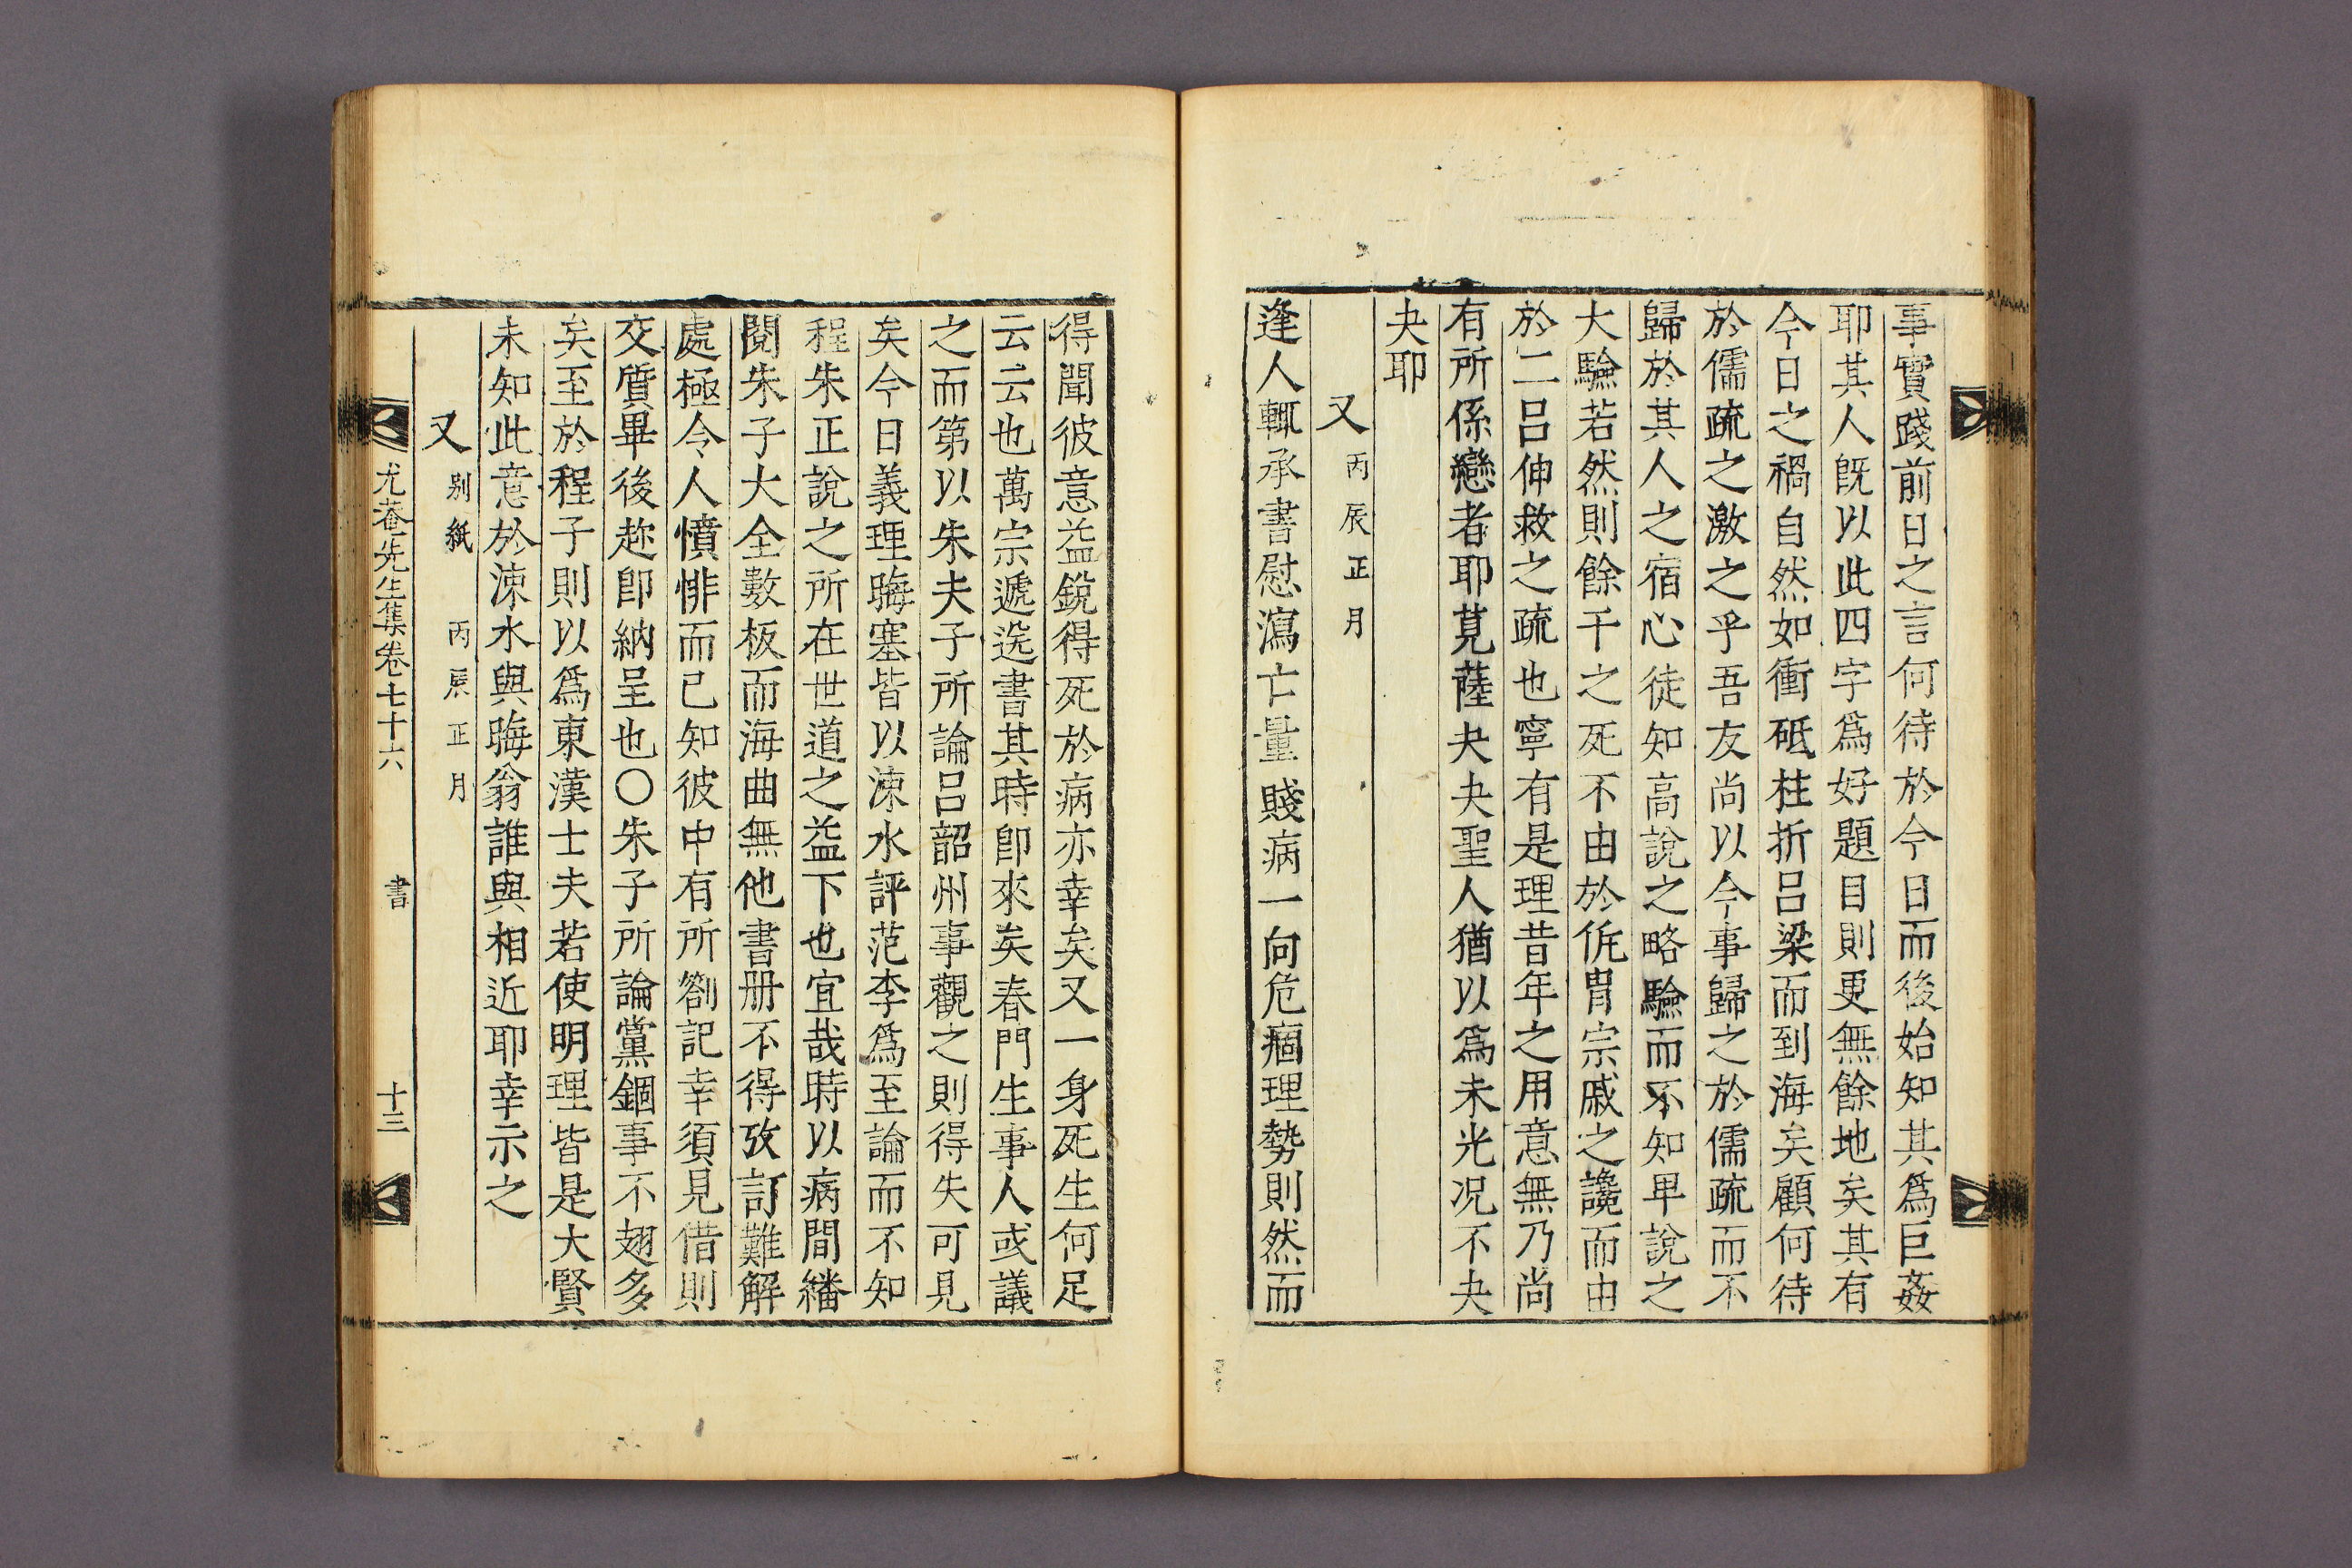 事實踐前日之言何待於今日而後始知其爲巨姦
耶其人旣以此四字爲好題目則更無餘地矣其有
今日之禍自然如衝砥柱折呂梁而到海矣顧何待
於儒疏之激之乎吾友尙以今事歸之於儒疏而不
歸於其人之宿心徒知高說之略驗而不知卑說之
大驗若然則餘干之死不由於侂冑宗戚之讒而由
於二呂伸救之疏也寧有是理昔年之用意無乃尙
有所係戀者耶莧蓙夬夬聖人猶以爲未光况不夬
夬耶
又 丙辰正月
逢人輒承書慰瀉亡量賤病一向危痼理勢則然而
得聞彼意益銳得死於病亦幸矣又一身死生何足
云云也萬宗遞送書其時卽來矣春門生事人或議
之而第以朱夫子所論呂韶州事觀之則得失可見
矣今日義理晦塞皆以涑水評范李爲至論而不知
程朱正說之所在世道之益下也宜哉時以病間繙
閱朱子大全數板而海曲無他書册不得攷訂難解
處極令人憤悱而已知彼中有所劄記幸須見借則
交質畢後趂卽納呈也〇朱子所論黨錮事不翅多
矣至於程子則以爲東漢士夫若使明理皆是大賢
未知此意於涑水與晦翁誰與相近耶幸示之
又 别紙 丙辰正月
尤菴先生集卷七十六 書 十三